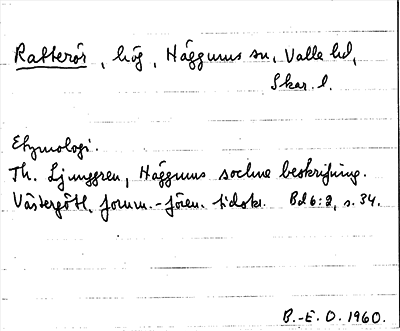 Ratterör, hög, Häggums sn, Valle hd,
Skar. l.
Etymologi.
Th. Ljunggren, Häggums sockne beskrifning.
Västergötl. fornm.-fören. tidskr. Bd 6:2, s. 34.
B.-E. O. 1960.